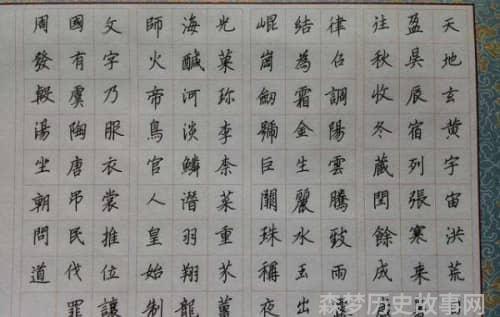 天地玄黄宇宙洪荒
盈昃辰宿列張寒来
往秋收冬藏閏餘成
律吕調陽雲騰致雨
結為霜金生麗水玉出
崐崗劒號巨闕珠稱夜
光菓珍李柰菜重芥薑
海醎河淡鱗潜羽翔龍
師火帝鳥官人皇始制
文字乃服衣裳推位讓
國有虞陶唐吊民伐罪
周發殷湯坐朝問道
森梦历史故事网